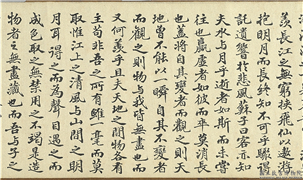 羨長江之無窮挾飛仙以遨遊
抱明月而長終知不可乎驟得
託遺響於悲風蘇子曰客亦知
夫水與月乎逝者如斯而未嘗
往也盈虛者如彼而卒莫消長
也蓋將自其變者而觀之則天
地曾不能以一瞬自其不變者
而觀之則物與我皆無盡也而
又何羨乎且夫天地之間物各有
主苟非吾之所有雖一毫而莫
取惟江上之清風與山間之明
月耳得之而為聲目遇之而
成色取之無禁用之不竭是造
物者之無盡藏也而吾與子之